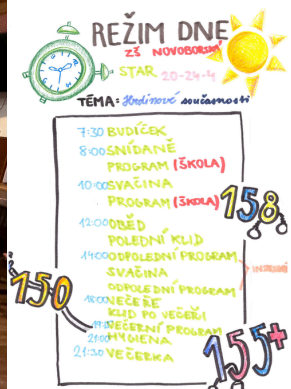 REŽIM DNE
ZŠ NOVOBORSKÁ
STAR 20-24-4
TÉMA: Hrdinové současnosti
7:30 BUDÍČEK
8:00 SNÍDANĚ
PROGRAM (ŠKOLA)
10:00 SVAČINA
PROGRAM (ŠKOLA)
158
12:00 OBĚD
POLEDNÍ KLID
14:00 ODPOLEDNÍ PROGRAM
SVAČINA
ODPOLEDNÍ PROGRAM
150
18:00 VEČEŘE
KLID PO VEČEŘI
VEČERNÍ PROGRAM
21:00 HYGIENA
21:30 VEČERKA
155+